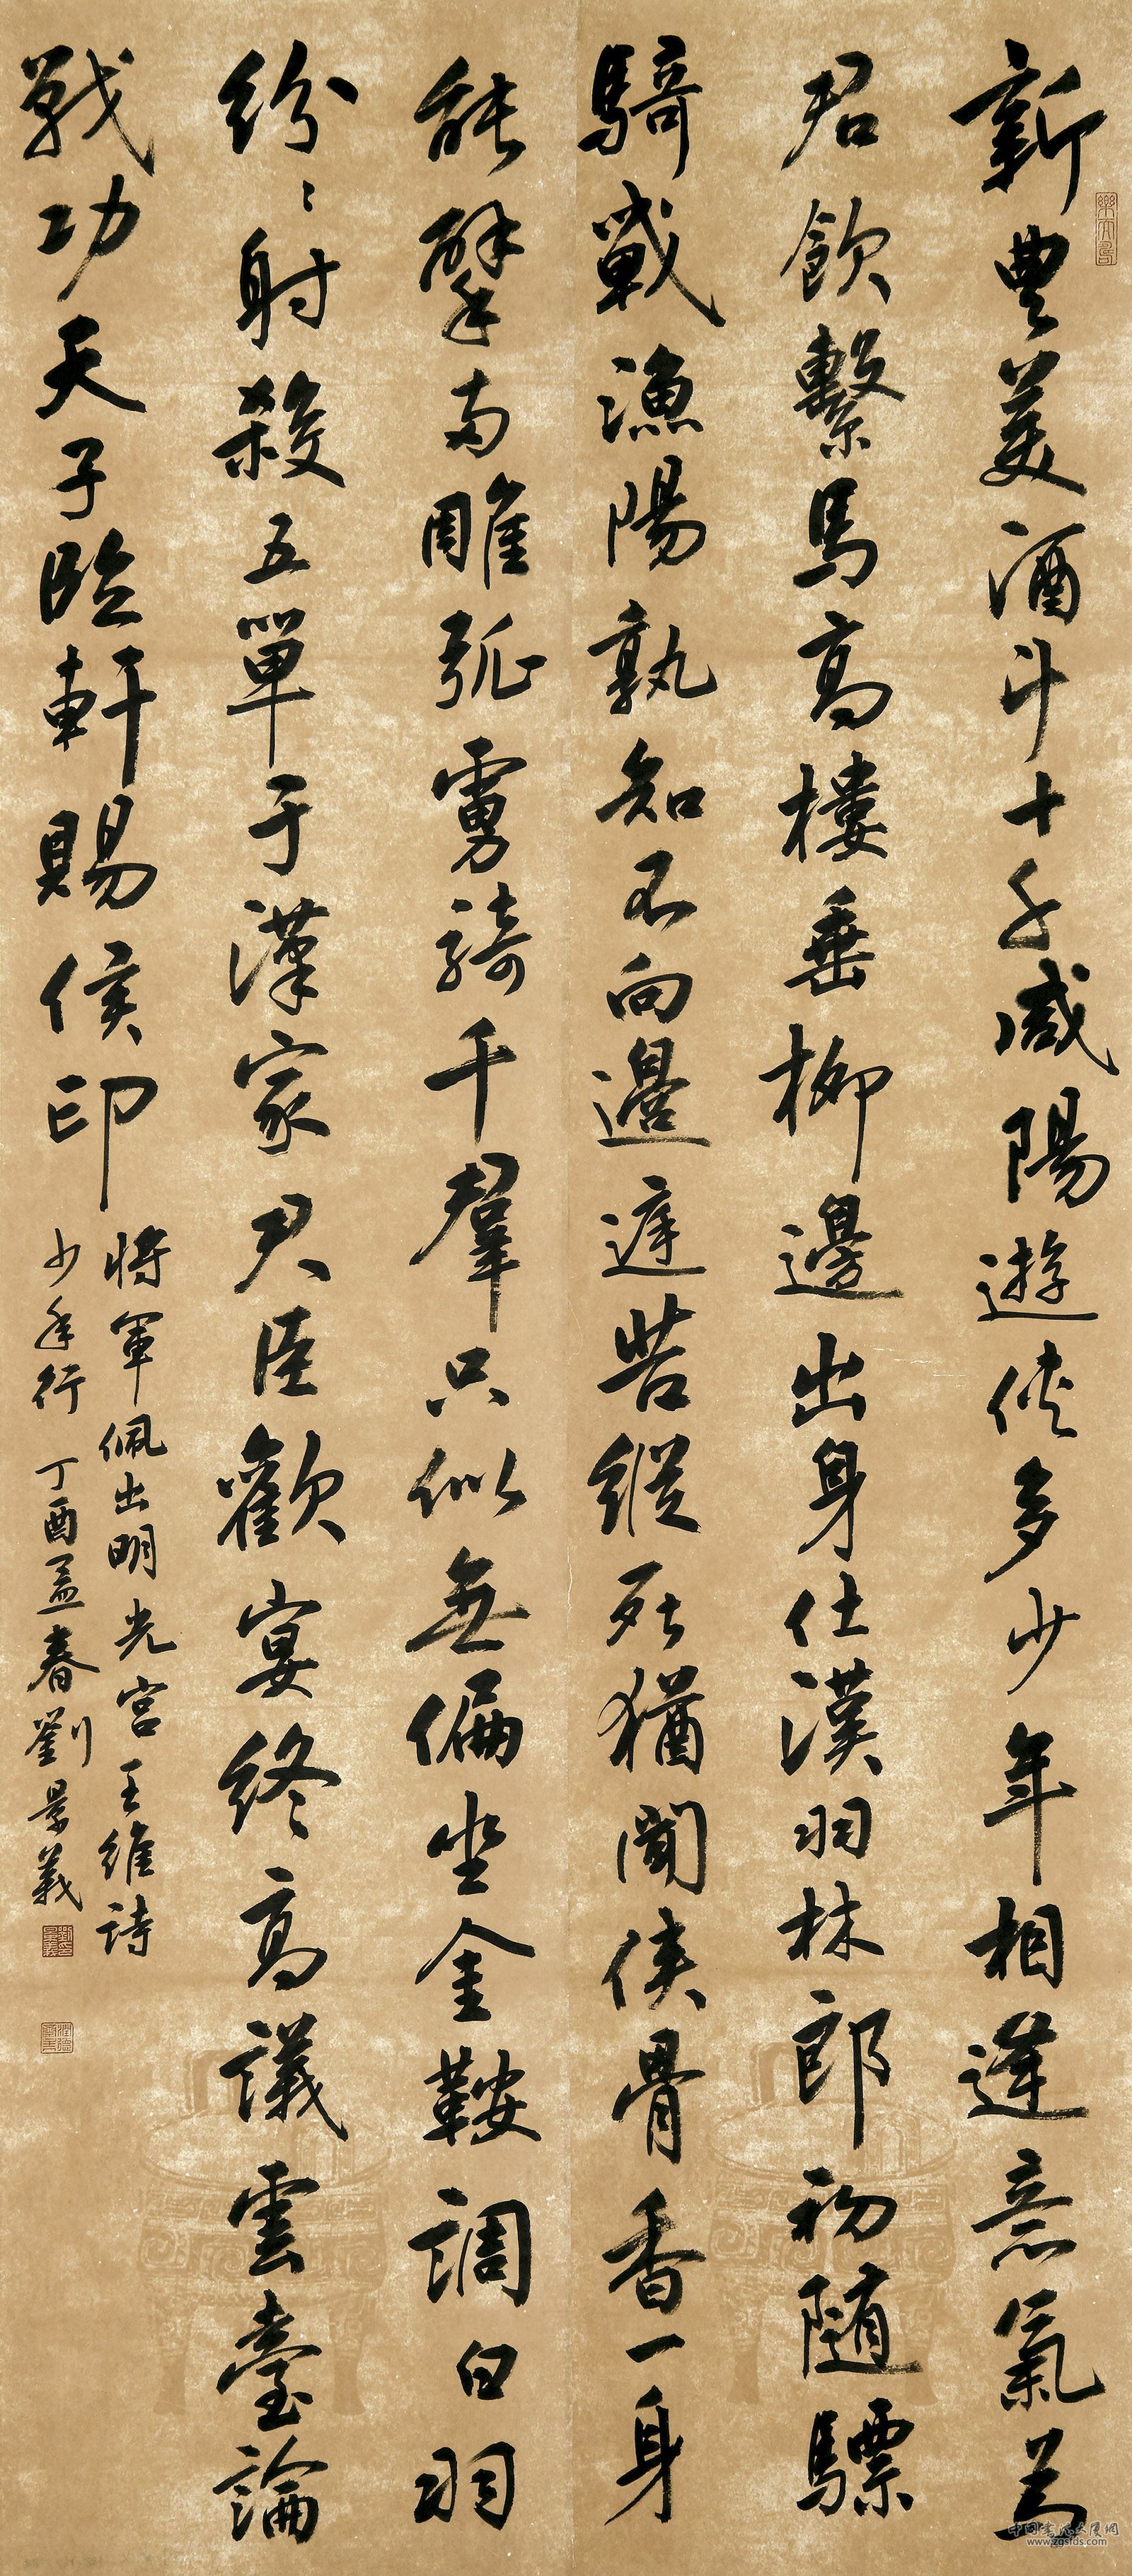 新豐美酒斗十千咸陽遊俠多少年相逢意氣為
君飲繫馬高樓垂柳邊出身仕漢羽林郎初隨驃
騎戰漁陽孰知不向邊庭苦縱死猶聞俠骨香一身
能擘兩雕弧虜騎千羣只似無偏坐金鞍調白羽
紛〻射殺五單于漢家君臣歡宴終高議雲臺論
戰功天子臨軒賜侯印
將軍佩出明光宮王維詩
少年行 丁酉孟春劉景義
www.zgsfds.com